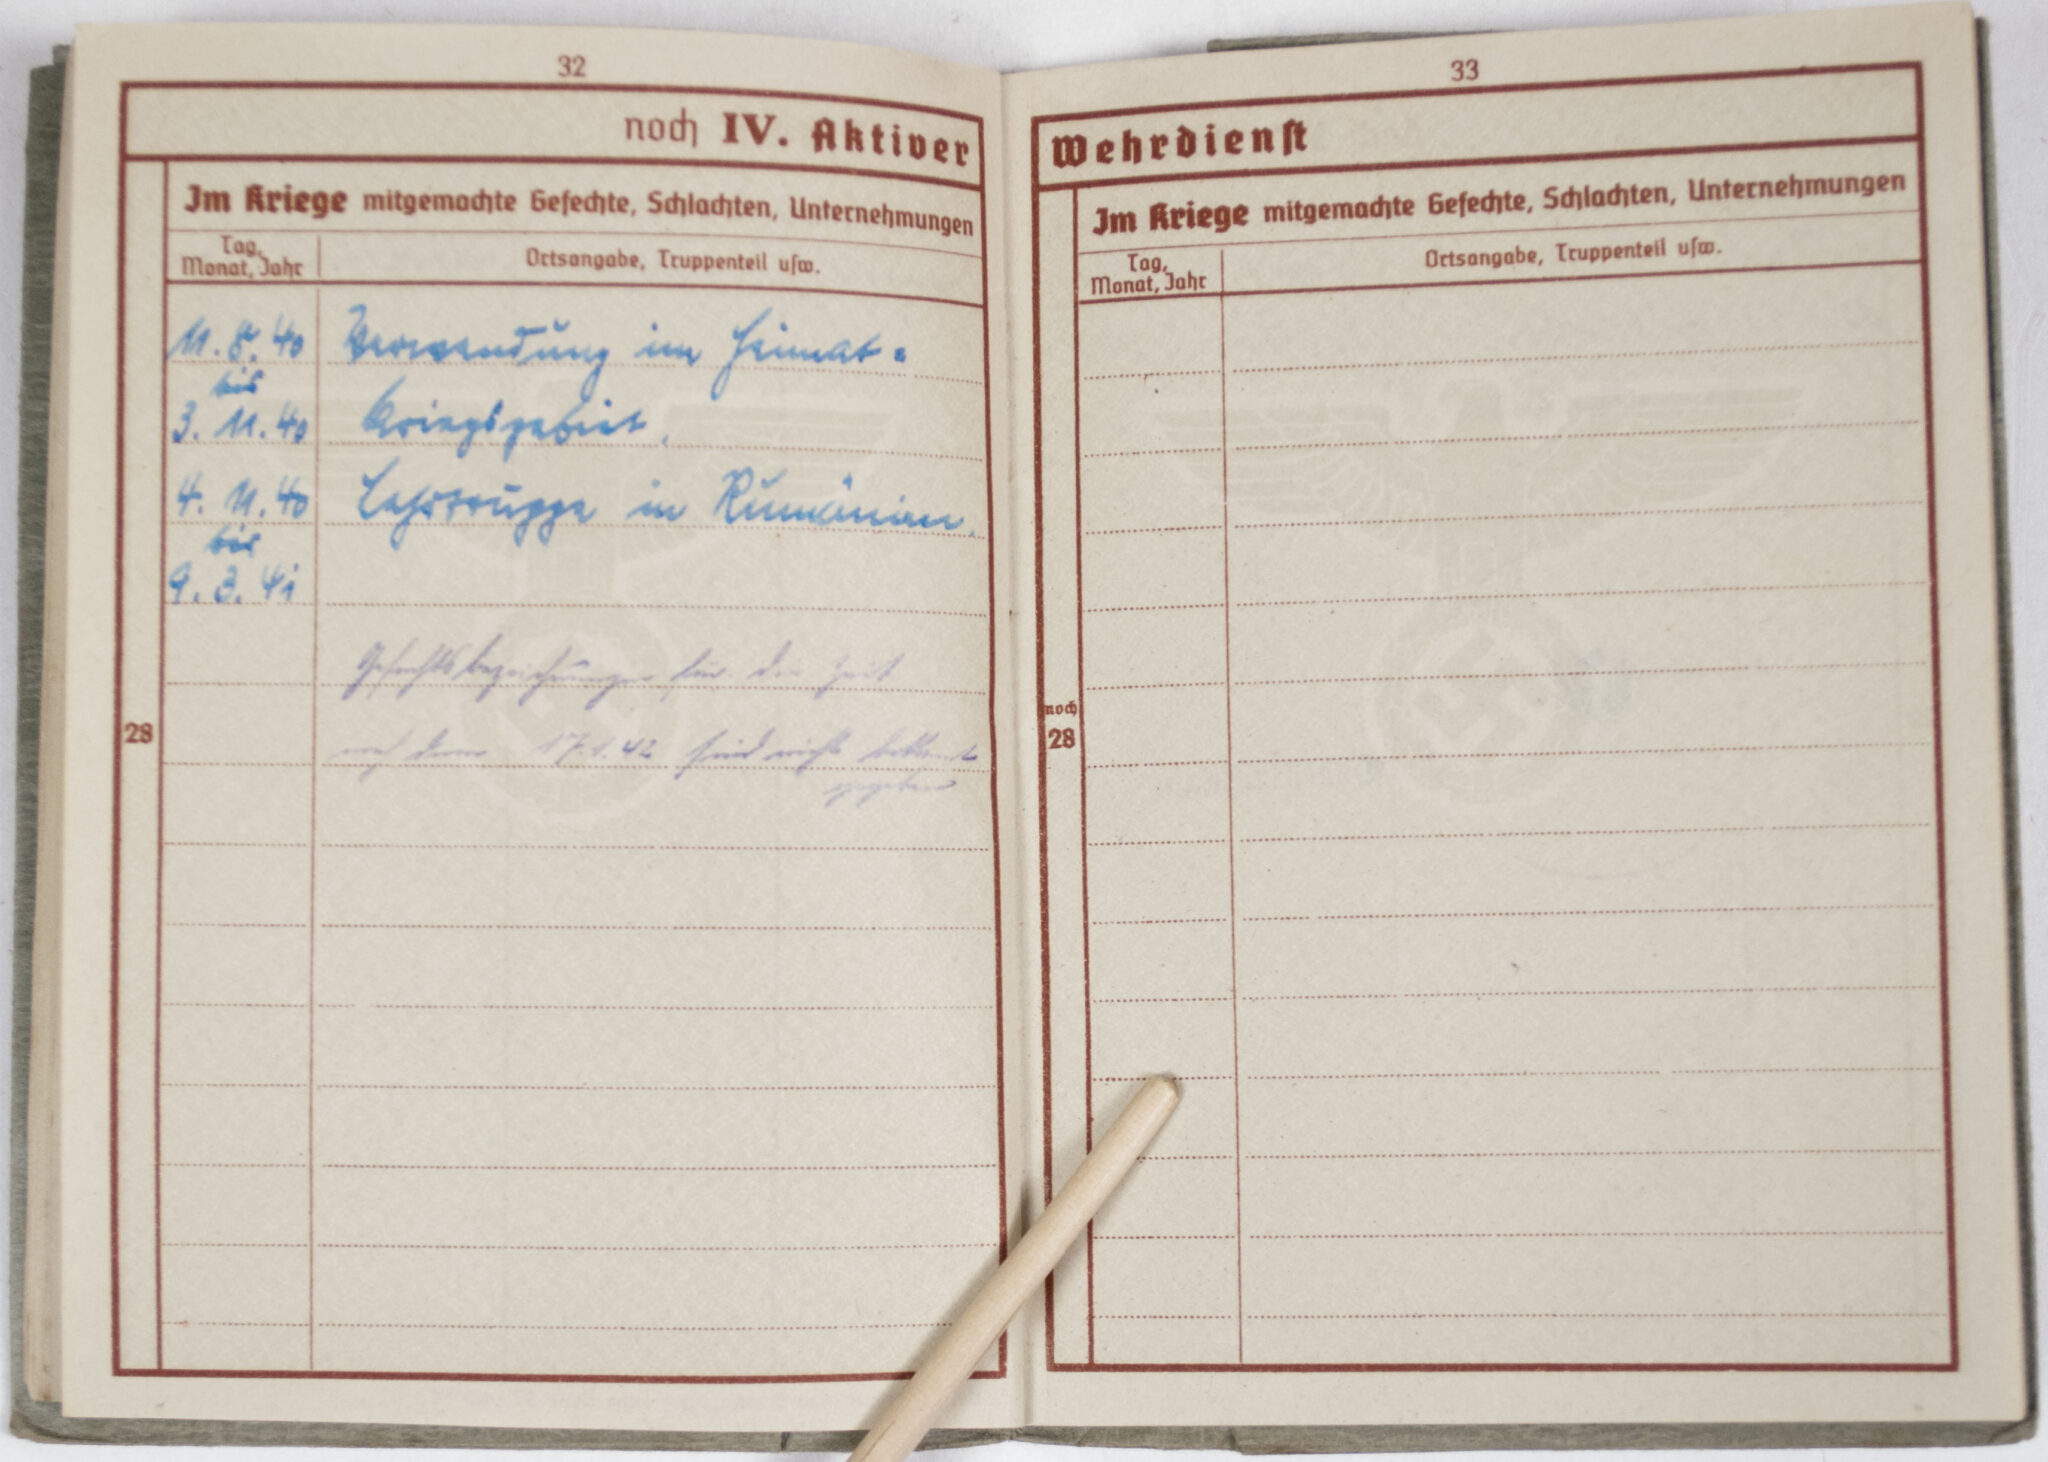 32
noch IV. Aktiver
Im Kriege mitgemachte Gefechte, Schlachten, Unternehmungen
Tag,
Monat, Jahr
Ortsangabe, Truppenteil usw.
11. 8. 40 Verwendung im Heimat-
bis
3. 11. 40 kriegsgebiet.
4. 11. 40 Lehrtruppe in Rumänien.
bis
9. 3. 41
Gefechtsbezeichnungen für die Zeit
28
nach dem 17.1.42 sind nicht bekannt
gegeben
33
Wehrdienst
Im Kriege mitgemachte Gefechte, Schlachten, Unternehmungen
Tag,
Monat, Jahr
Ortsangabe, Truppenteil usw.
noch
28